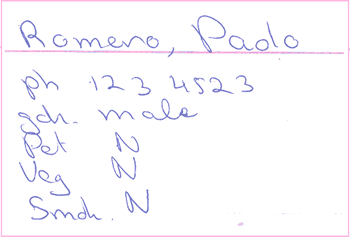 Romero, Paolo
ph 123 4523
gdr. male
Pet N
Veg N
Smok. N